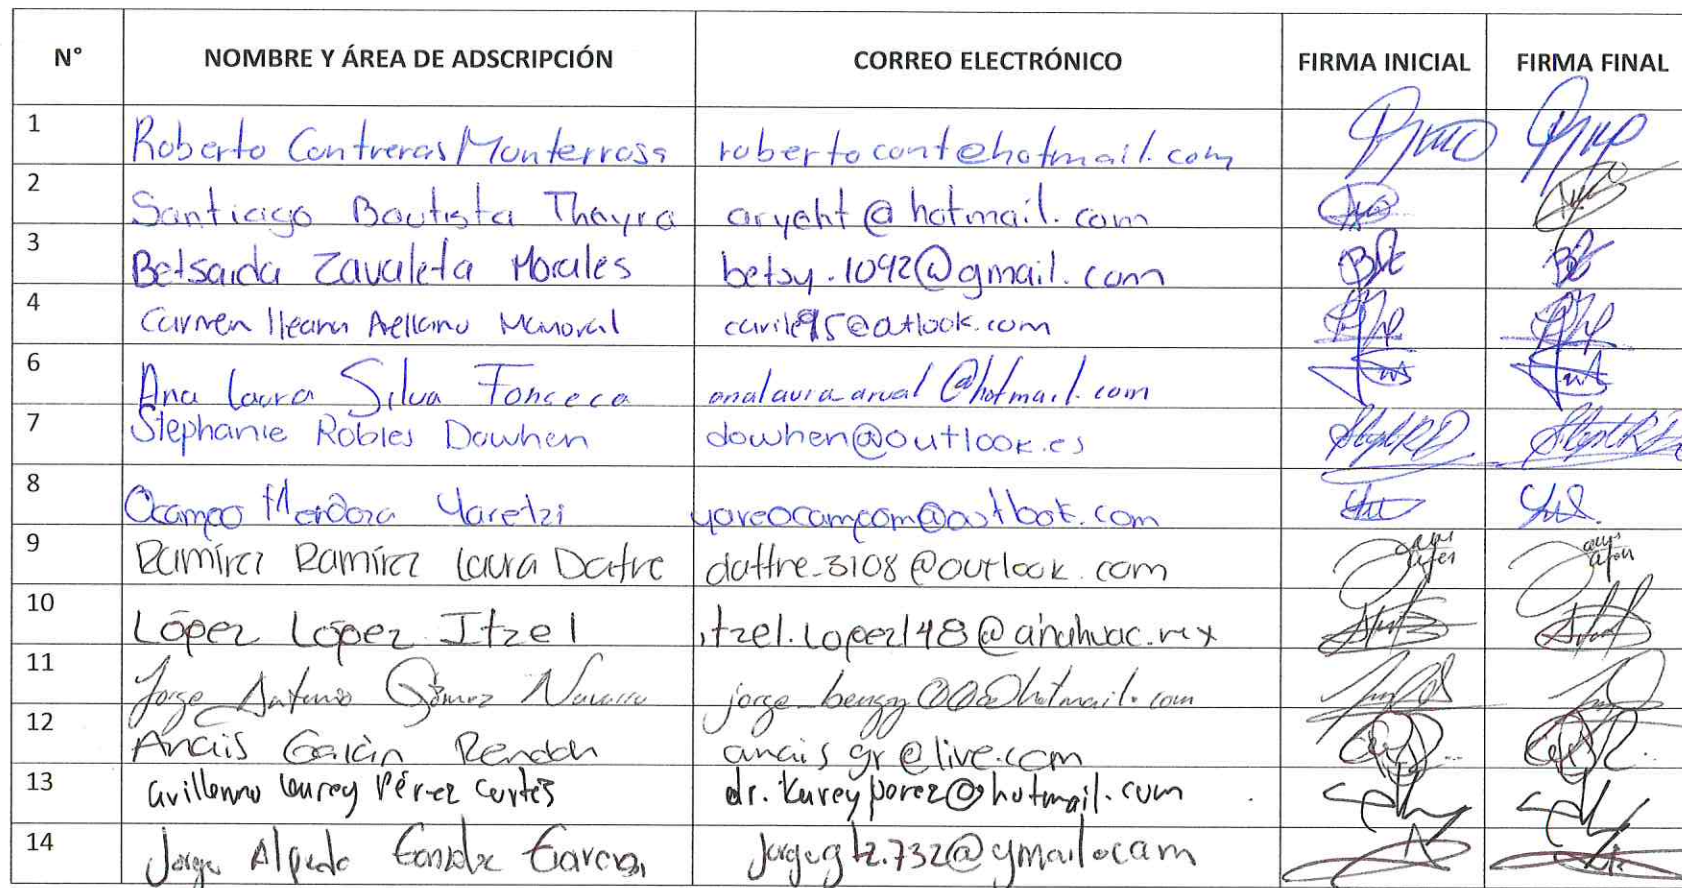 N° NOMBRE Y ÁREA DE ADSCRIPCIÓN CORREO ELECTRÓNICO FIRMA INICIAL FIRMA FINAL
1 Roberto Contreras Monterrosa robertocont@hotmail.com
2 Santiago Bautista Thayra aryaht@hotmail.com
3 Betsaida Zavaleta Morales betsy.1092@gmail.com
4 Carmen Ileana Arellano carile95@outlook.com
6 Ana Laura Silva Fonseca analaura_arual@hotmail.com
7 Stephanie Robles Dowhen dowhen@outlook.es
8 Ocampo Mendoza Yaretzi yareocampom@outlook.com
9 Ramírez Ramírez Laura Dafne daffne_3108@outlook.com
10 López López Itzel itzel.lopez148@anahuac.mx
11 Jorge Antonio Gómez Navarro
12 Anais Garcín Rendon anais_gr@live.com
13 Guillermo Kurey Pérez Cortés dr.kureyperez@hotmail.com
14 Jorge Alfredo González García jorgegtz.732@gmail.com